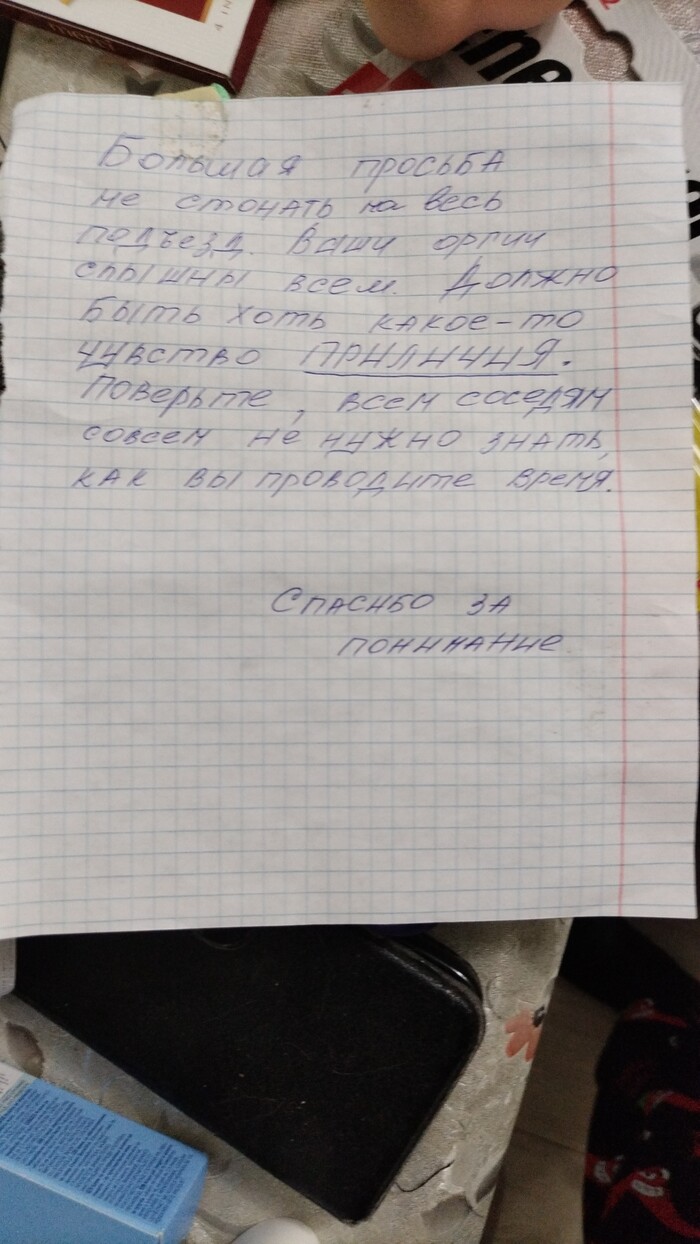 merci
4 IN
ne
Большая просьба
не стонать на весь
подъезд. Ваши оргии
слышны всем. Должно
быть хоть какое-то
чувство ПРИЛИЧИЯ.
Поверьте, всем соседям
совсем не нужно знать,
как вы проводите время.
Спасибо за
понимание